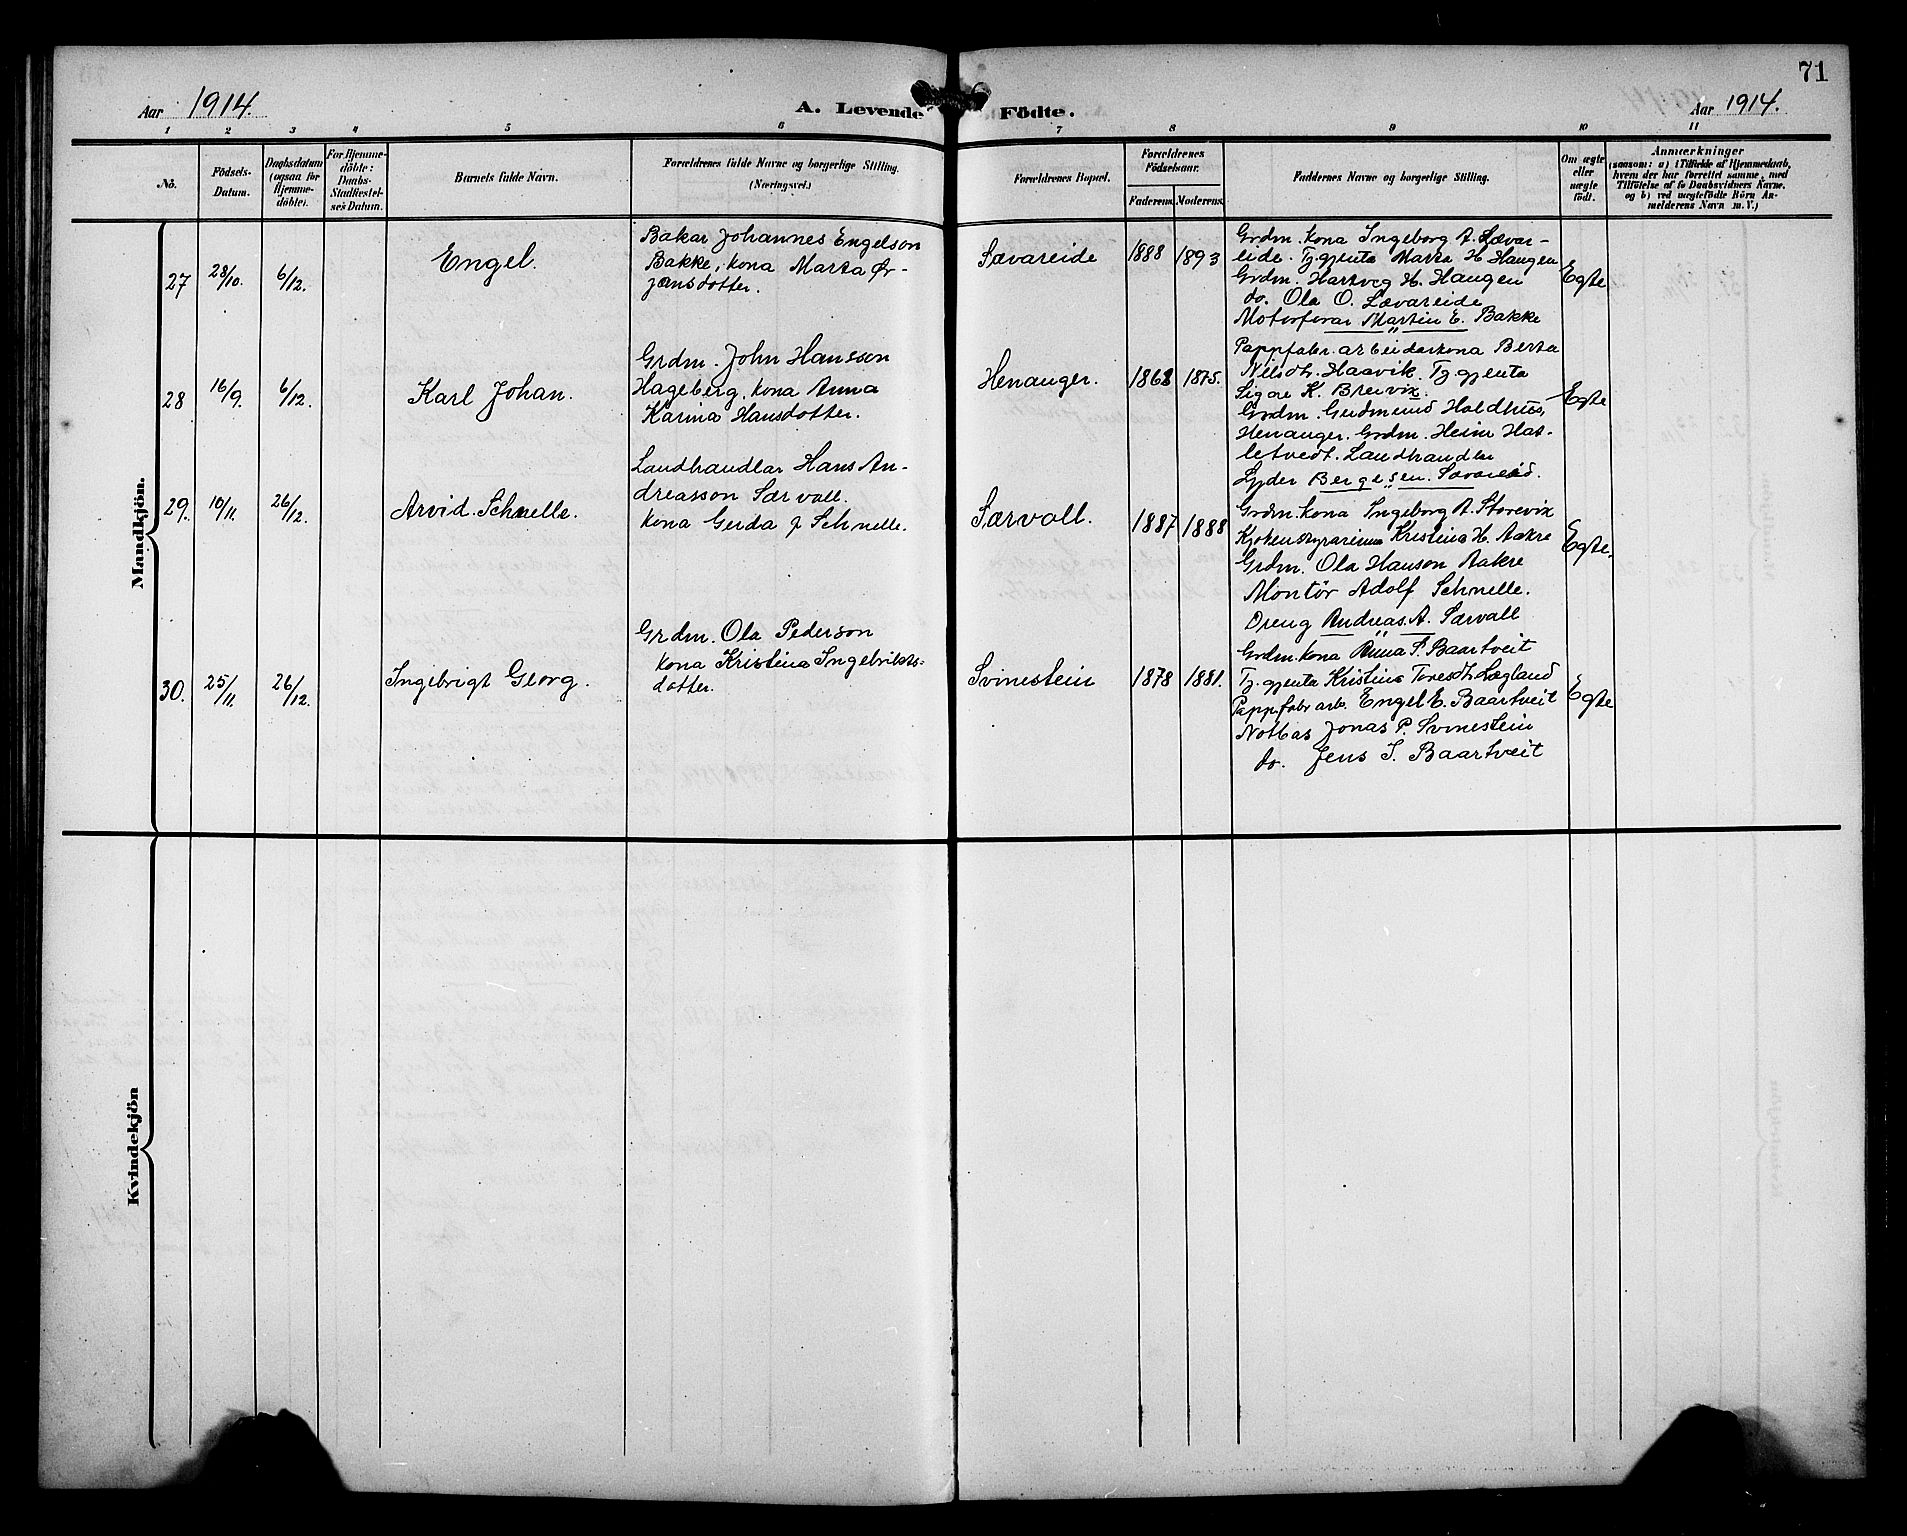 71
Aar 1914.
A. Levende Födte.
Aar 1914.
1 2 3 4 5 6 7 8 9 10 11
No.
Födsels-
Datum.
Daabsdatum
(ogsaa for
Hjemme-
döbte).
For Hjemme-
döbte:
Daabs-
Stadfæstel-
ses Datum.
Barnets fulde Navn.
Forældrenes fulde Navne og borgerlige Stilling.
(Næringsvei.)
Forældrenes Bopæl.
Forældrenes
Födselsaar.
Faderens. Moderens.
Faddernes Navne og borgerlige Stilling.
Om ægte
eller
uægte
født.
Anmærkninger
(saasom: a) i Tilfælde af Hjemmedaab,
hvem der har forrettet samme, med
Tilföielse af to Daabsvidners Navne.
og b) ved uægtefödte Börn An-
melderens Navn m. V.)
Mandkjön.
27 28/10. 6/12. Engel.
Bakar Johannes Engelson
Bakke, kona Marta Ør-
jansdotter.
Sævareide 1888 1893
Grdm. kona Ingeborg A. Sævar-
eide. Tj. gjenta Marta H. Haugen
Grdm. Hartvig H. Haugen
do. Ola O. Sævareide
Motorførar Martin E. Bakke
Egte
28 16/9. 6/12. Karl Johan.
Grdm. John Hansson
Hageberg, kona Anna
Karina Hansdotter.
Henanger. 1868 1875.
Pappfabr. arbeidarkona Berta
Nilsdtr. Haavik. Tj. gjenta
Signe K. Breivik.
Grdm. Gudmund Holdhus,
Henanger. Grdm. Heine Hat-
letvedt. Landhandlar
Lyder Bergesen. Sævareid.
Egte
29. 10/11. 26/12. Arvid. Schnelle.
Landhandlar Hans An-
dreasson Særvoll.
kona Gerda f. Schnelle.
Særvoll. 1887 1888
Grdm. kona Ingeborg A. Storevik
Kristina H. Aakre
Grdm. Ola Hanson Aakre
Montör Adolf Schnelle.
Dreng Andreas. A. Særvoll
Egte.
30. 25/11. 26/12. Ingebrigt Georg.
Grdm. Ola Pederson
kona Kristina Ingebrikts-
dotter.
Svinestein 1878 1881.
Grdm. kona Anna P. Baartveit
Tj. gjenta Kristina Toresdtr.
Pappfabr arb. Engel E. Baartveit
Notbas Jonas P. Svinestein
do. Jens I. Baartveit
Egte
Kvindekjön